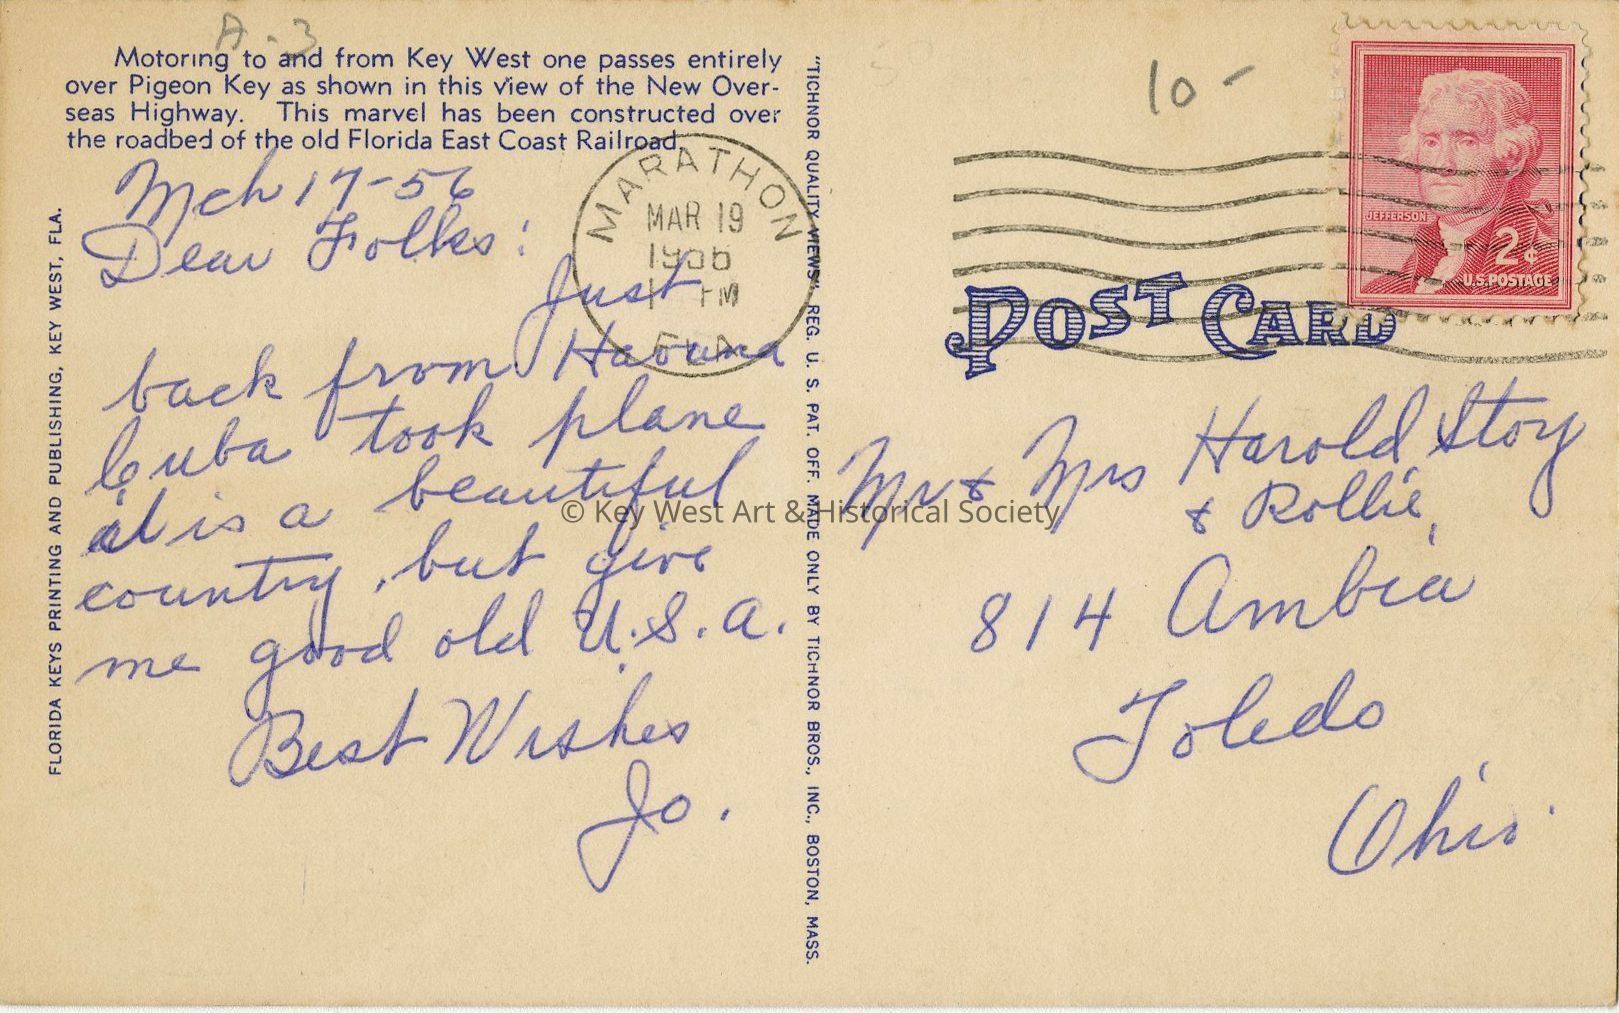 A-3
Motoring to and from Key West one passes entirely
over Pigeon Key as shown in this view of the New Over-
seas Highway. This marvel has been constructed over
the roadbed of the old Florida East Coast Railroad.
Mch 17-56
Dear Folks:
Just
back from Havana
Cuba took plane
it is a beautiful
country, but give
me good old U.S.A.
Best Wishes
Jo.
FLORIDA KEYS PRINTING AND PUBLISHING, KEY WEST, FLA.
MARATHON
MAR 19
1956
1 PM
FLA
"TICHNOR QUALITY VIEWS," REG. U. S. PAT. OFF. MADE ONLY BY TICHNOR BROS., INC., BOSTON, MASS.
10-
JEFFERSON
2¢
U.S. POSTAGE
POST CARD
Mr & Mrs Harold Stoy
& Rollie,
814 Ambia
Toledo
Ohio
© Key West Art & Historical Society